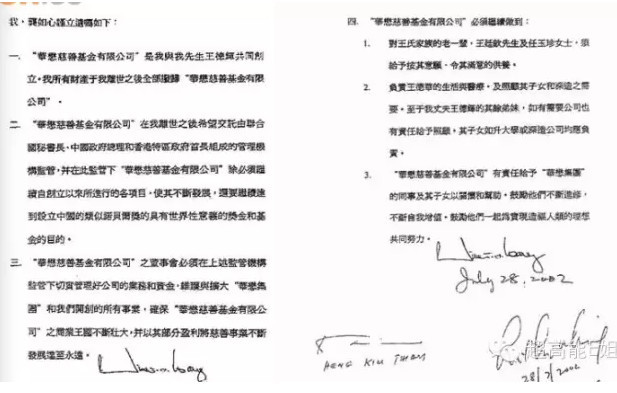 我，龔如心謹立遺囑如下：
一. “華懋慈善基金有限公司”是我與我先生王德輝共同創
立。我所有財產于我離世之後全部撥歸“華懋慈善基金有限
公司”。
二. “華懋慈善基金有限公司”在我離世之後希望交託由聯合
國秘書長、中國政府總理和香港特區政府首長組成的管理機
構監管，并在此監管下“華懋慈善基金有限公司”除必須繼
續自創立以來所進行的各項目，使其不斷發展，還要繼續達
到設立中國的類似諾貝爾獎的具有世界性意義的獎金和基
金的目的。
三. “華懋慈善基金有限公司”之董事會必須在上述監管機構
監管下切實管理好公司的業務和資金，維護與擴大“華懋集
團”和我們開創的所有事業，確保“華懋慈善基金有限公
司”之商業王國不斷壯大，并以其部分盈利將慈善事業不斷
發展達至永遠。
四. “華懋慈善基金有限公司”必須繼續做到：
1. 對王氏家族的老一輩，王廷歆先生及任玉珍女士，須
給予按其意願、令其滿意的供養。
2. 負責王德華的生活與醫療，及照顧其子女和深造之需
要。至于我丈夫王德輝的其餘弟妹，如有需要公司也
有責任給予照顧，其子女如升大學或深造公司均應負
責。
3. “華懋慈善基金有限公司”有責任給予“華懋集團”
的同事及其子女以關懷和幫助。鼓勵他們不斷進修，
不斷自我增值。鼓勵他們一起為實現造福人類的理想
共同努力。
July 28, 2002
28/7/2002
超高能E姐